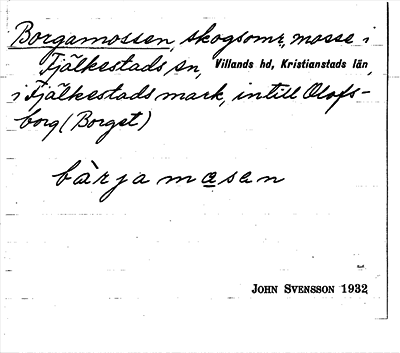 Borgamossen, skogsomr., mosse i
Fjälkestads sn, Villands hd, Kristianstads län,
i Fjälkestads mark, intill Olofs-
borg (Borget)
bàrjamɷsen
JOHN SVENSSON 1932